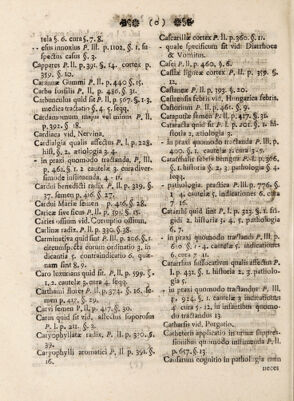 (o)
tela §. 6. cura §. 7. 8.
- - ejus innoxius P. III. p. 1102. §. 1. suspectus casus §. 3.
Capparis P. II. p. 391. §. 14. cortex p. 359. §. 10.
Carannæ Gummi P. II. p. 440. §. 15.
Carbo fossilis P. II. p. 486. §. 31.
Carbunculus quid sit P. II. p. 567. §. 1. 3. medice tractatio §. 4. 5. seqq.
Cardamomum majus vel minus P. II. p. 392. § 18.
Cardiaca vid. Nervina.
Cardialgia qualis affectus P. I. p. 228. hist. §. 2. ætiologia 3. 4.
- in praxi quomodo tractanda, P. III. p. 460. §. 1. 2. cautelæ 3. curæ diversimode instituenda 4. - 11.
Cardui benedicti radix P. II. p. 339. §. 37. semen p. 416. §. 27.
Cardui Mariæ semen p. 416. §. 28.
Caricæ sive ficus P. II. p. 395. §. 15.
Caries ossium vid. Corruptio ossium.
Carlinæ radix P. II. p. 330. §. 38.
Carminativa quid sint P. II. p. 206. §. 1. circumspecta eorum ordinatio 3. in dicantia 5. contraindicantia 6. quænam sint 8. 9.
Caro luxurians quid sit P. II. p. 599. §. 1. 2. cautelæ 3. cura 4. seqq.
Carthami flores P. II. p. 374. §. 16. semen p. 417. §. 29.
Carvi semen P. II. p. 417. §. 30.
Carus quid sit vid. affectus soporosus P. I. p. 211. §. 2.
Caryophyllatæ radix, P. II. p. 330. §. 39.
Caryophylli aromatici P. II. p. 392. §. 16.
Cascarillæ cortex P. II. p. 360. §. 11.
- quale specificum sit vid: Diarrhoea & Vomitus.
Casei P. II. p. 460. §. 6.
Cassiæ ligneæ cortex P. II. p. 359. §. 12.
Castaneæ P. II. p. 393. §. 20.
Castrensis febris vid. Hungarica febris.
Castorium P. II. p. 461. §. 9.
Cataputiæ semen P. II. p. 417. §. 31.
- in praxi quomodo tractanda P. III. p. 400. §. 1. cautelæ 2. cura 3. - 5.
- pathologica, practica P. III. p. 776. §. 3. 4. cautelæ 5. indicationes 6. cura 7 - 16.
- in praxi quomodo tractandus P. III. p. 610 §. 1. - 4. cautelæ 5. indicationes 6. cura 7. 11.
Catarrhus suffocativus qualis affectus P. I. p. 431. §. 1. historia 2. 3. pathologia 5.
- in praxi quomodo tractandus P. III. p. 924. §. 1. 2. cautelæ 3. indicationes 4. cura 5 - 12. in infantibus quomodo tractandus 13.
Catharsis vid. Purgatio.
Catheteris applicatio in urinæ suppressionibus quomodo instituenda P. II. p. 657. §. 13.
Causarum cognitio in pathologia cum